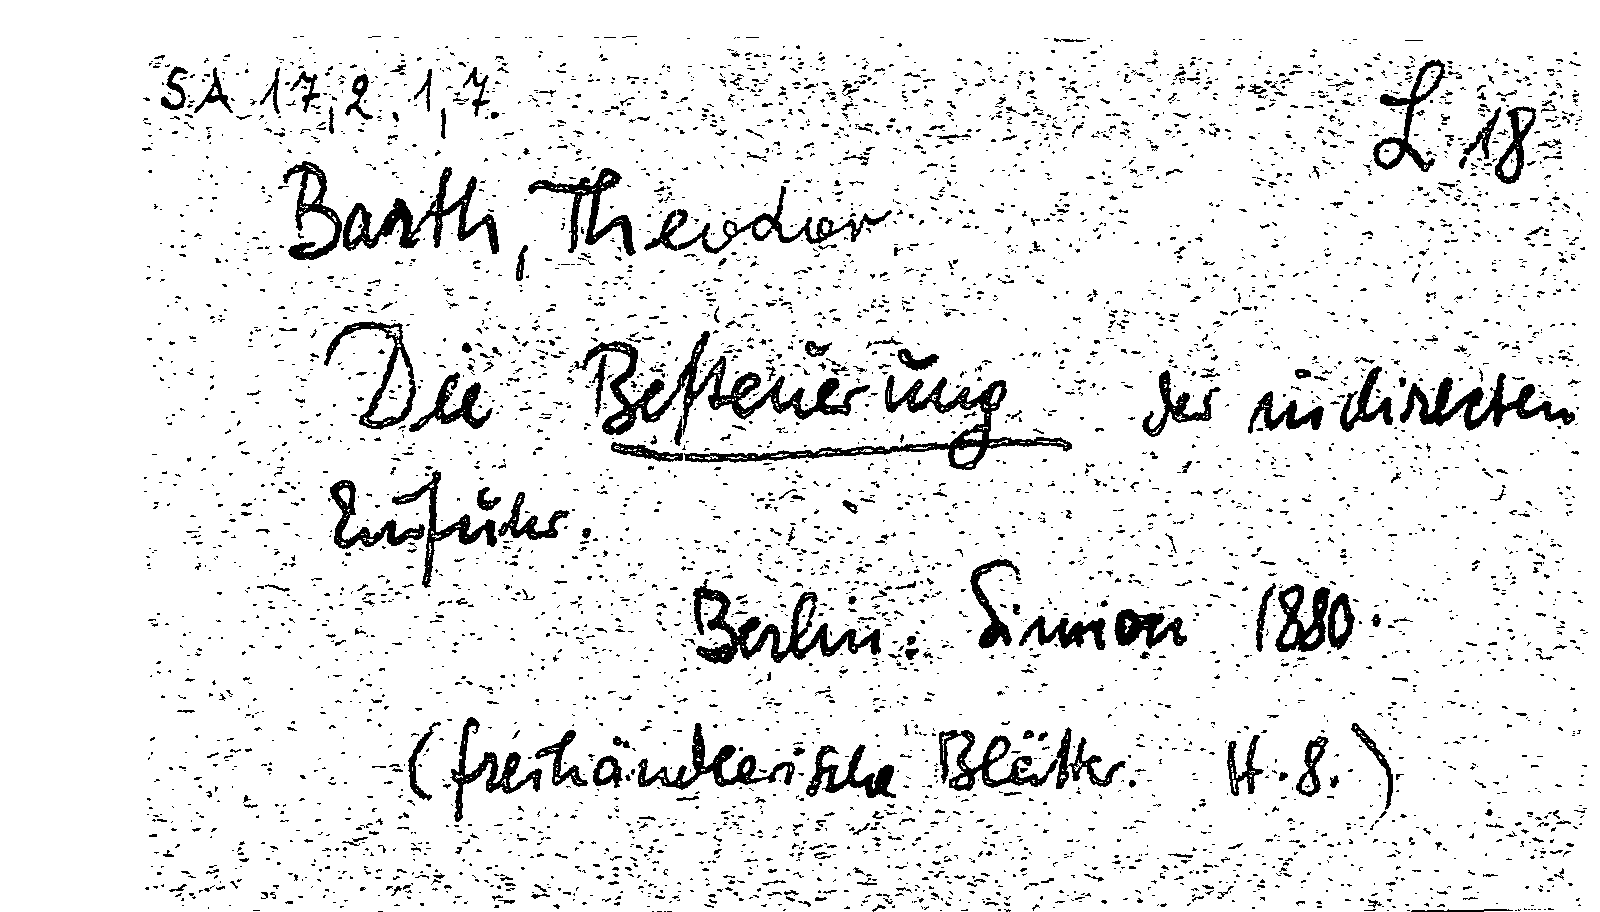 SA 17,2.1,7.
L 18
Barth, Theodor
Die Besteuerung der indirecten
Einfuhr.
Berlin: Simion 1880.
(freihändlerische Blätter. H. 8.)